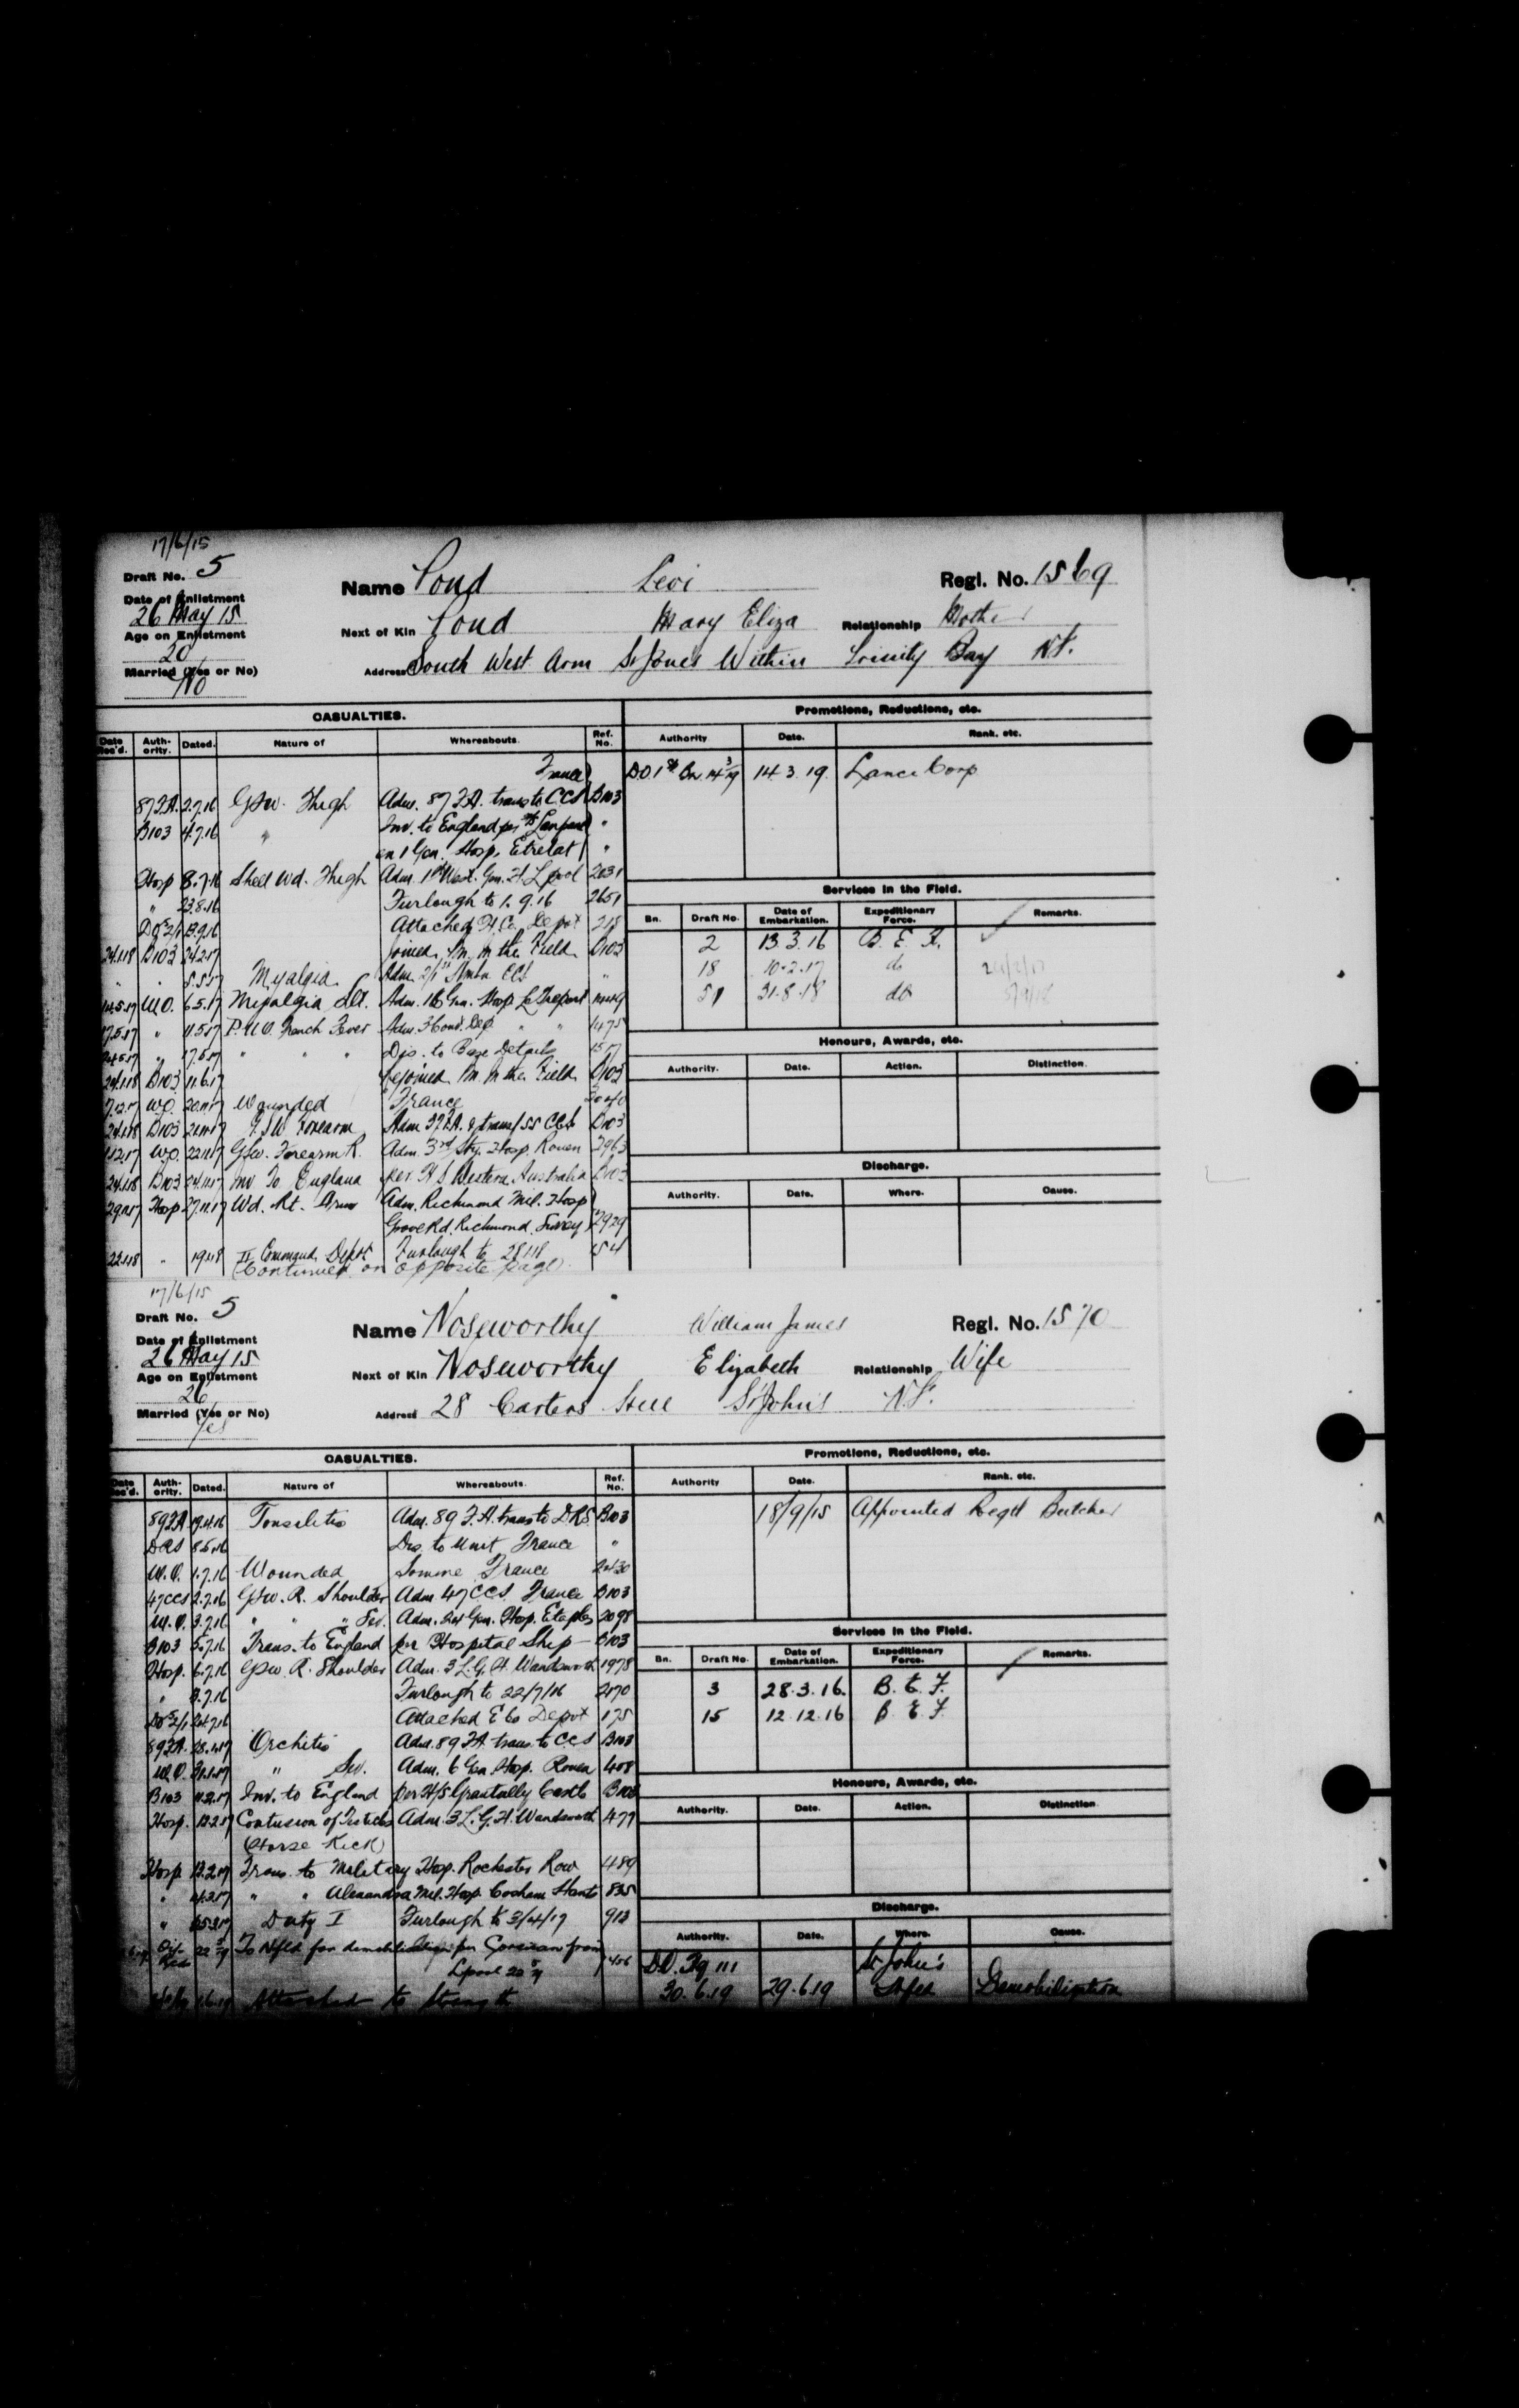 17/6/15
Draft No. 5
Name Pond Levi Regl. No. 1569
Date of Enlistment
26 May 15
Next of Kin Pond Mary Eliza Relationship Mother
Age on Enlistment
20
Address South West Arm St Jones Within Trinity Bay Nf.
Married (Yes or No)
No
CASUALTIES. Promotions, Reductions, etc.
Date Rec'd. Auth-ority. Dated. Nature of Whereabouts. Ref. No. Authority Date. Rank. etc.
France DO 1st Bn. 14 3/19 14.3.19. Lance Corp
87 F.A. 2.7.16 GSW. Thigh Adm. 87 F.A. trans to CCS B103
B103 4.7.16 " Inv. to England per "
ex 1 Gen. Hosp. Etretat "
Hosp 8.7.16 Shell Wd. Thigh Adm. 1st West. Gen. H. Lpool 2031
" 23.8.16 Furlough to 1.9.16 2651
Attached H. Co. Depot 218
24.1.18 B103 24.2.17 Joined Bn. in the Field B103
" " 5.5.17 Myalgia Adm. 2/1st CCS "
14.5.17 W.O. 6.5.17 Myalgia Slt. Adm. 16 Gen. Hosp Le Treport
17.5.17 " 11.5.17 P.U.O. Trench Fever Adm. 3 Conv. Dep. " " 1475
24.5.17 " 17.5.17 " " " Dis. to Base Details 1517
24.1.18 B103 11.6.17 Rejoined Bn. in the Field B103
7.12.17 W.O. 20.11.17 Wounded France 3040
24.1.18 B103 21.11.17 GSW Forearm Adm 37 F.A. & transf 55 CCS B103
1.12.17 W.O. 22.11.17 GSW. Forearm R. Adm. 3rd Sty. Hosp. Rouen 2963
24.1.18 B103 24.11.17 Inv To England per H S Western Australia B103
29.11.17 Hosp 27.11.17 Wd. Rt. Arm Adm. Richmond Mil. Hosp
Grove Rd. Richmond. Surrey 2929
22.1.18 " 19.1.18 II Command Depot Furlough to 28.1.18 154
(Continued on opposite page)
Services in the Field.
Bn. Draft No. Date of Embarkation. Expeditionary Force. Remarks.
2 13.3.16 B. E. F.
18 10.2.17 do
51 31.8.18 do
Honours, Awards, etc.
Authority. Date. Action. Distinction.
Discharge.
Authority. Date. Where. Cause.
17/6/15
Draft No. 5
Name Noseworthy William James Regl. No. 1570
Date of Enlistment
26 May 15
Next of Kin Noseworthy Elizabeth Relationship Wife
Age on Enlistment
26
Address 28 Carters Hill St John's Nf.
Married (Yes or No)
Yes
CASUALTIES. Promotions, Reductions, etc.
Date Rec'd. Auth-ority. Dated. Nature of Whereabouts. Ref. No. Authority Date. Rank. etc.
18/9/15 Appointed Regtl Butcher
89 F.A. 19.4.16 Tonsilitis Adm. 89 F.A. trans to D.R.S. B103
DRS 8.5.16 Dis. to Unit France "
W.O. 1.7.16 Wounded Somme France 2430
47 CCS 2.7.16 GSW. R. Shoulder Adm 47 CCS France B103
W.O. 3.7.16 " " " Sev. Adm. 24 Gen. Hosp. Etaples 2098
B103 5.7.16 Trans. to England per Hospital Ship — B103
Hosp. 6.7.16 GSW. R. Shoulder Adm. 3 L. G. H. Wandsworth 1978
" Furlough to 22/7/16 2170
24.7.16 Attached E Co Depot 175
89 F.A. 28.1.17 Orchitis Adm. 89 F.A. trans. to CCS B103
W.O. 31.1.17 " Sev. Adm. 6 Gen. Hosp. Rouen 408
B103 11.2.17 Inv. to England per H/S Grantully Castle B103
Hosp. 12.2.17 Contusion of Testicles Adm. 3 L. G. H. Wandsworth 477
(Horse Kick)
Hosp 13.2.17 Trans. to Military Hosp. Rochester Row 489
" " " Alexandra Mil. Hosp. Cosham Hants 835
" Duty I Furlough to 3/4/17 912
To Nfld for demobilisation per Corsican from
Lpool
Attached to Strength
Services in the Field.
Bn. Draft No. Date of Embarkation. Expeditionary Force. Remarks.
3 28.3.16. B. E. F.
15 12.12.16 B. E. F.
Honours, Awards, etc.
Authority. Date. Action. Distinction.
Discharge.
Authority. Date. Where. Cause.
30.6.19 29.6.19 St John's Nfld Demobilisation